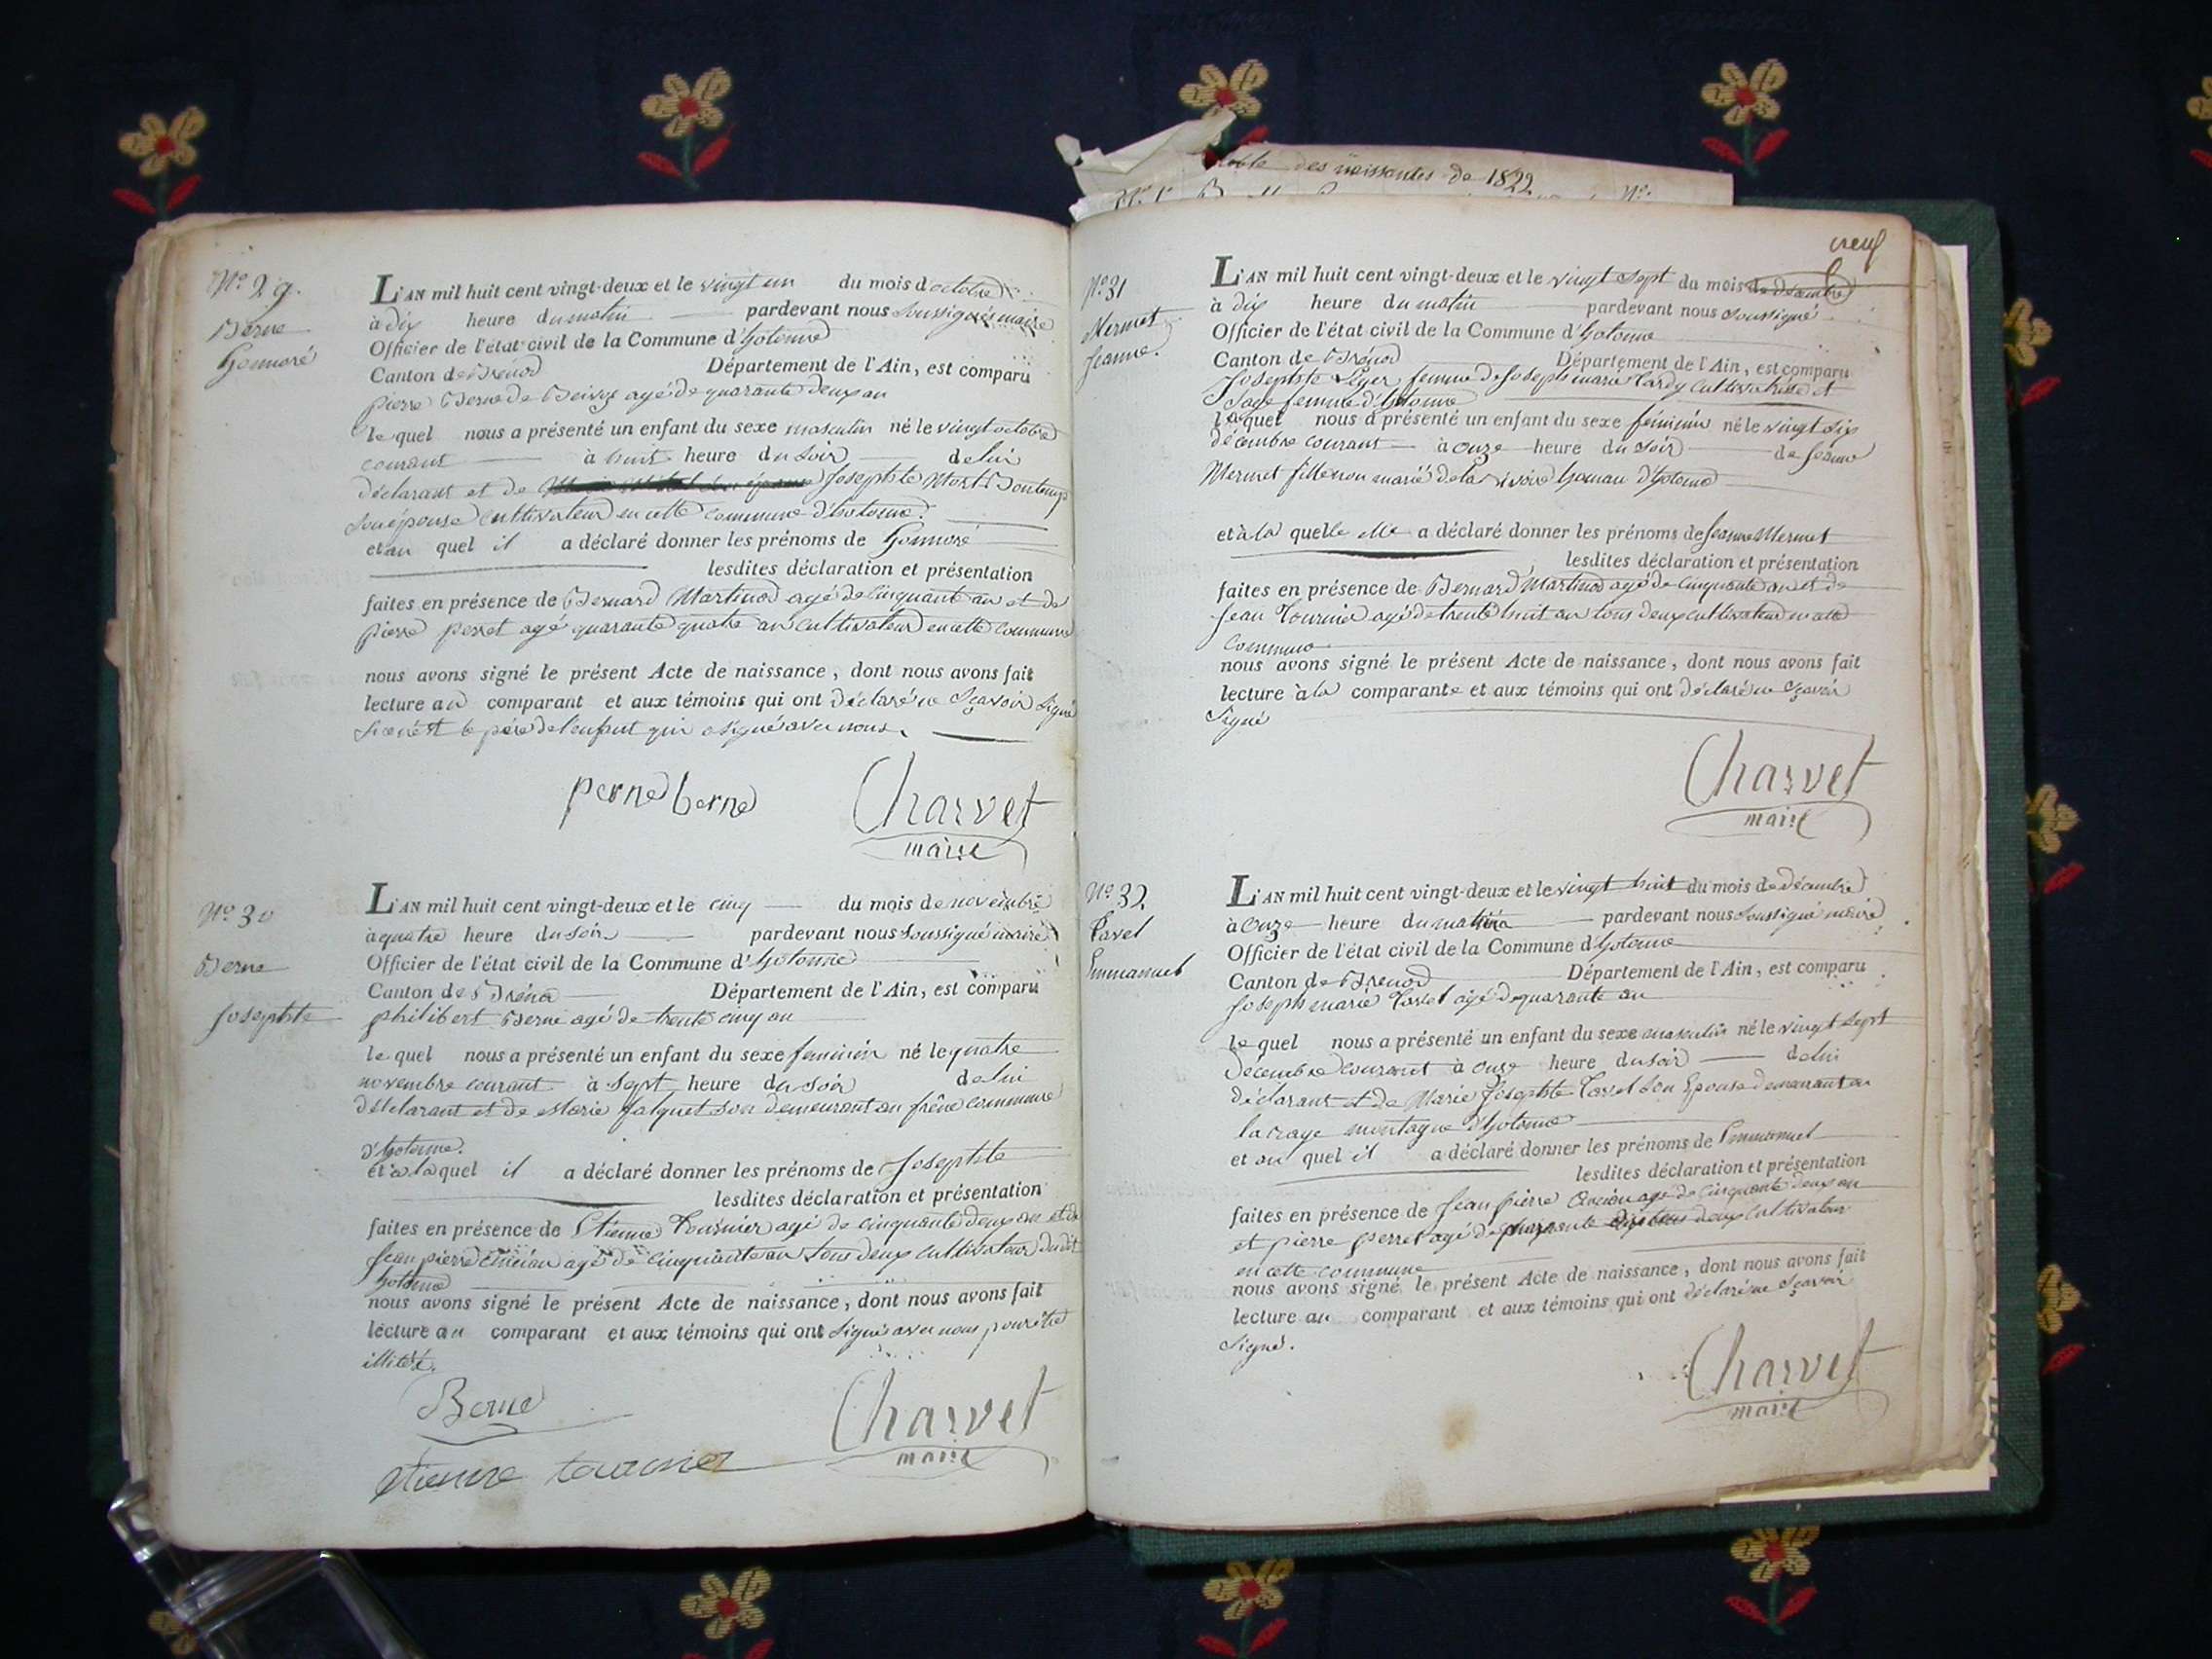 N.º 29.
Berne
Honnoré
L'AN mil huit cent vingt-deux et le vingt un du mois d'octobre
à dix heure du matin pardevant nous soussigné maire
Officier de l'état civil de la Commune d'hotonne
Canton de Brenod Département de l'Ain, est comparu
pierre Berne de agé de quarante deux an
le quel nous a présenté un enfant du sexe masculin né le vingt octobre
courant à huit heure du soir de lui
déclarant et de Josephte
son épouse cultivateur en cette commune d'hotonne.
et au quel il a déclaré donner les prénoms de honnoré
lesdites déclaration et présentation
faites en présence de Bernard Martinod agé de cinquante an et de
pierre perret agé quarante quatre an cultivateur en cette commune
nous avons signé le présent Acte de naissance, dont nous avons fait
lecture au comparant et aux témoins qui ont déclaré ne sçavoir signé
le père de l'enfant qui a signé avec nous.
berne
Charvet
maire
N.º 30
Berne
Josephte
L'AN mil huit cent vingt-deux et le cinq du mois de novembre
à quatre heure du soir pardevant nous soussigné maire
Officier de l'état civil de la Commune d'hotonne
Canton de Brénod Département de l'Ain, est comparu
philibert Berne agé de trente cinq an
le quel nous a présenté un enfant du sexe feminin né le quatre
novembre courant à sept heure du soir de lui
déclarant et de Marie falquet son demeurant au frêne commune
d'hotonne.
et à la quel il a déclaré donner les prénoms de Josephte
lesdites déclaration et présentation
faites en présence de Etienne Tournier agé de cinquante deux an et de
Jean pierre ancian agé de cinquante an tous deux cultivateur dudit
hotonne
nous avons signé le présent Acte de naissance, dont nous avons fait
lecture au comparant et aux témoins qui ont signé avec nous pour être
Berne
Charvet
maire
etienne tournier
table des naissantes de 1822
N.º
neuf
N.º 31
Mermet
Jeanne.
L'AN mil huit cent vingt-deux et le vingt sept du mois de décembre
à dix heure du matin pardevant nous soussigné
Officier de l'état civil de la Commune d'hotonne
Canton de Brénod Département de l'Ain, est comparu
Josephte Léger femme de Joseph marie Tardy cultivatrice et
sage femme d'hotonne
la quel nous a présenté un enfant du sexe féminin né le vingt six
décembre courant à onze heure du soir de Jeanne
Mermet fille non marié de la hameau d'hotonne
et à la quelle elle a déclaré donner les prénoms de Jeanne Mermet
lesdites déclaration et présentation
faites en présence de Bernard Martinod agé de cinquante an et de
Jean Tournier agé de trente huit an tous deux cultivateur en cette
commune
nous avons signé le présent Acte de naissance, dont nous avons fait
lecture à la comparante et aux témoins qui ont déclaré ne sçavoir
signé
Charvet
maire
N.º 32.
Tavel
Emmanuel
L'AN mil huit cent vingt-deux et le vingt huit du mois de décembre
à onze heure du matin pardevant nous soussigné maire
Officier de l'état civil de la Commune d'hotonne
Canton de Brenod Département de l'Ain, est comparu
Joseph marie Tavel agé de quarante an
le quel nous a présenté un enfant du sexe masculin né le vingt sept
décembre courant à onze heure du soir de lui
déclarant et de Marie Josephte Tavel son Epouse demeurant en
montagne d'hotonne
et au quel il a déclaré donner les prénoms de Emmanuel
lesdites déclaration et présentation
faites en présence de Jean pierre ancian agé de cinquante deux an
et pierre perret agé de quarante tous deux cultivateur
en cette commune
nous avons signé le présent Acte de naissance, dont nous avons fait
lecture au comparant et aux témoins qui ont déclaré ne sçavoir
signé.
Charvet
maire